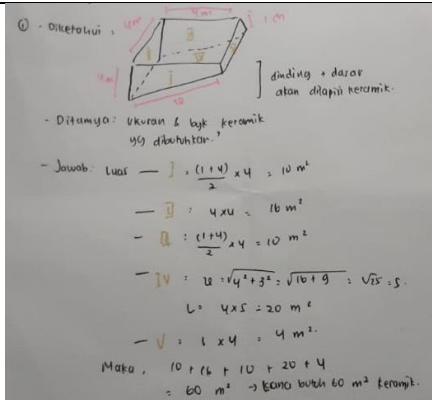 ① - Diketahui :
4m
4m
1 m
II
I
III
IV
4m
I
u
dinding + dasar
akan dilapisi keramik.
- Ditanya : Ukuran & byk keramik
yg dibutuhkan ?
- Jawab : Luas — I : (1+4)/2 x 4 = 10 m²
— II : 4x4 = 16 m²
— III : (1+4)/2 x 4 = 10 m²
— IV : u = √4² + 3² = √16 + 9 = √25 = 5.
L = 4 x 5 = 20 m²
— V : 1 x 4 = 4 m².
Maka, 10 + 16 + 10 + 20 + 4
= 60 m² → butuh 60 m² keramik.